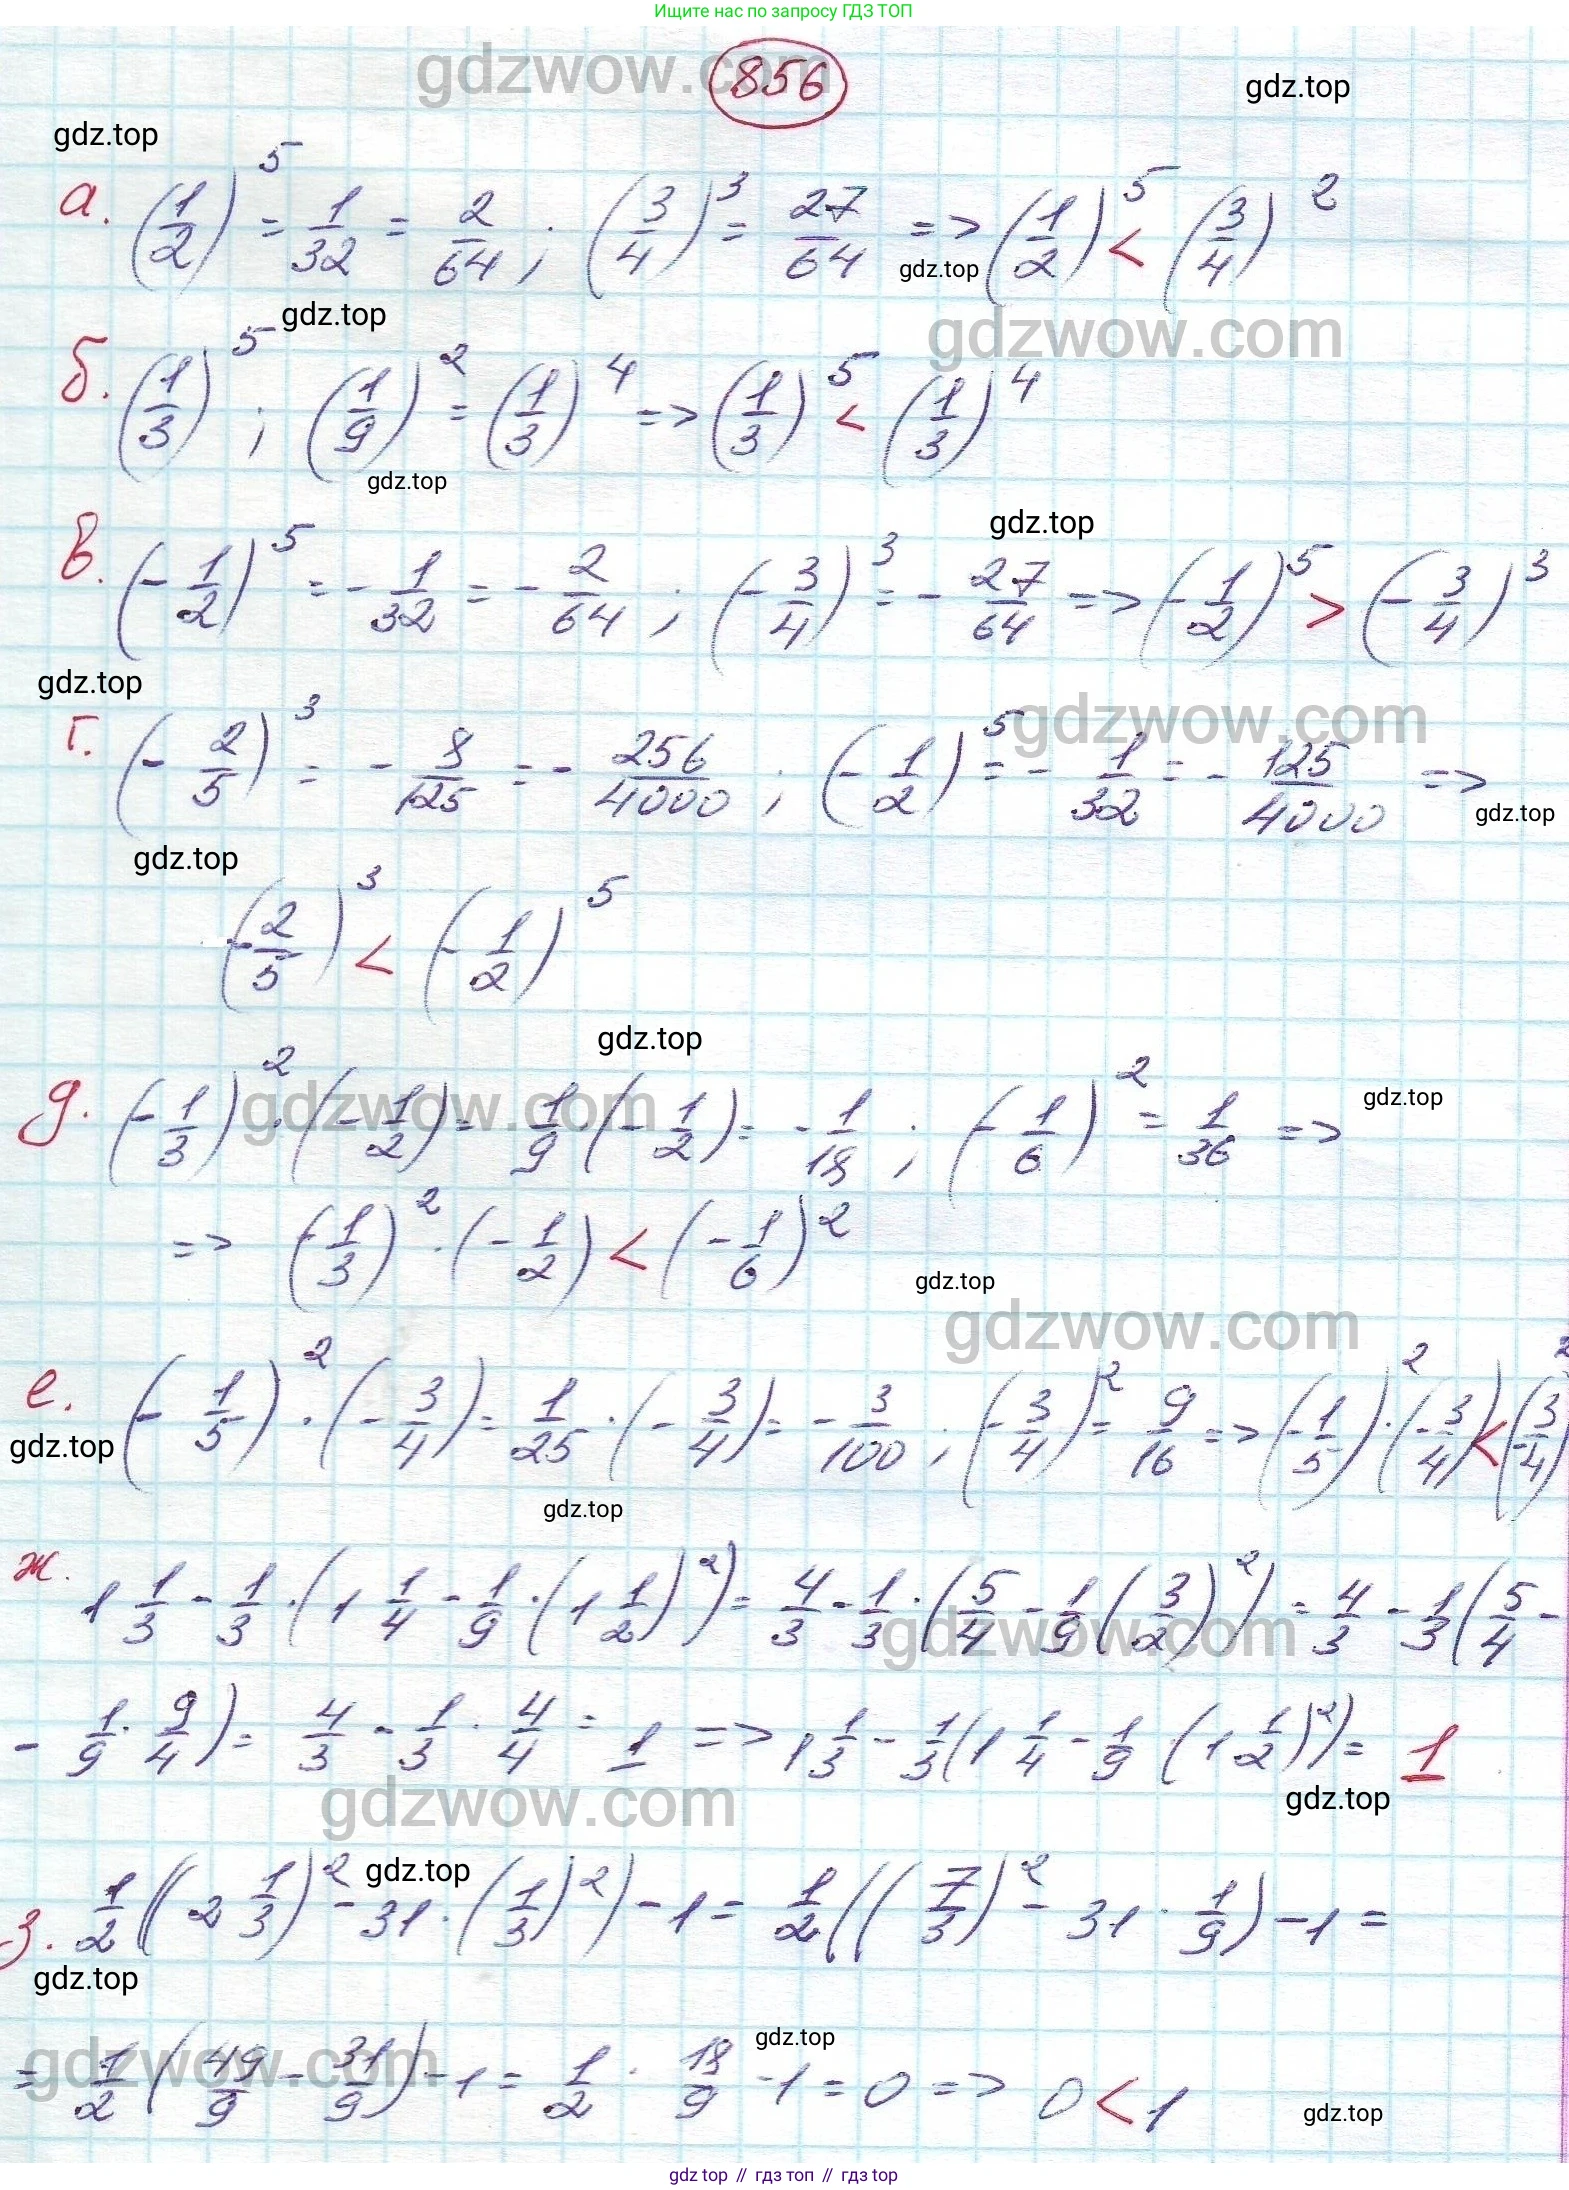 Ищите нас по запросу ГДЗ ТОП
gdzwow.com
856
gdz.top
gdz.top
а. (1/2)^5 = 1/32 = 2/64 ; (3/4)^3 = 27/64 => (1/2)^5 < (3/4)^2
gdz.top
gdz.top
gdzwow.com
б. (1/3)^5 ; (1/9)^2 = (1/3)^4 => (1/3)^5 < (1/3)^4
gdz.top
gdz.top
в. (-1/2)^5 = -1/32 = -2/64 ; (-3/4)^3 = -27/64 => (-1/2)^5 > (-3/4)^3
gdz.top
gdzwow.com
г. (-2/5)^3 = -8/125 = -256/4000 ; (-1/2)^5 = -1/32 = -125/4000 =>
gdz.top
gdz.top
(-2/5)^3 < (-1/2)^5
gdz.top
gdz.top
gdzwow.com
д. (-1/3)^2 · (-1/2) = 1/9 · (-1/2) = -1/18 ; (-1/6)^2 = 1/36 =>
=> (-1/3)^2 · (-1/2) < (-1/6)^2
gdz.top
gdzwow.com
е. (-1/5)^2 · (-3/4) = 1/25 · (-3/4) = -3/100 ; (-3/4)^2 = 9/16 => (-1/5)^2 · (-3/4) < (-3/4)^2
gdz.top
gdz.top
ж. 1 1/3 - 1/3 · (1 1/4 - 1/9 · (1 1/2)^2) = 4/3 - 1/3 · (5/4 - 1/9 (3/2)^2) = 4/3 - 1/3 (5/4 -
gdzwow.com
- 1/9 · 9/4) = 4/3 - 1/3 · 4/4 = 1 => 1 1/3 - 1/3 (1 1/4 - 1/9 (1 1/2)^2) = 1
gdz.top
gdzwow.com
gdz.top
з. 1/2 ((2 1/3)^2 - 31 · (1/3)^2) - 1 = 1/2 ((7/3)^2 - 31 · 1/9) - 1 =
gdz.top
gdz.top
gdzwow.com
= 1/2 (49/9 - 31/9) - 1 = 1/2 · 18/9 - 1 = 0 => 0 < 1
gdz.top
gdz top // гдз топ // гдз top